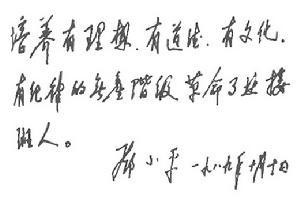 培养有理想、有道德、有文化、
有纪律的無產階级革命事业接
班人。
邓小平 一九八九年十月十日